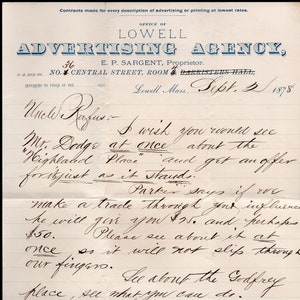 Contracts made for every description of advertising or printing at lowest rates.
OFFICE OF
LOWELL
ADVERTISING AGENCY,
E. P. SARGENT, Proprietor.
36
NO. CENTRAL STREET, ROOM BARRISTERS HALL,
Lowell Mass. Sept. 2/1878
Uncle Rufus:-
I wish you would see
Mr. Dodge at once about the
"Highland Place" and get an offer
for it just as it stands.
Parties says if we
make a trade through your influence
he will give you $25. and perhaps
$50. Please see about it at
once so it will not slip through
our fingers.
See about the Godfrey
place, see what you can do.